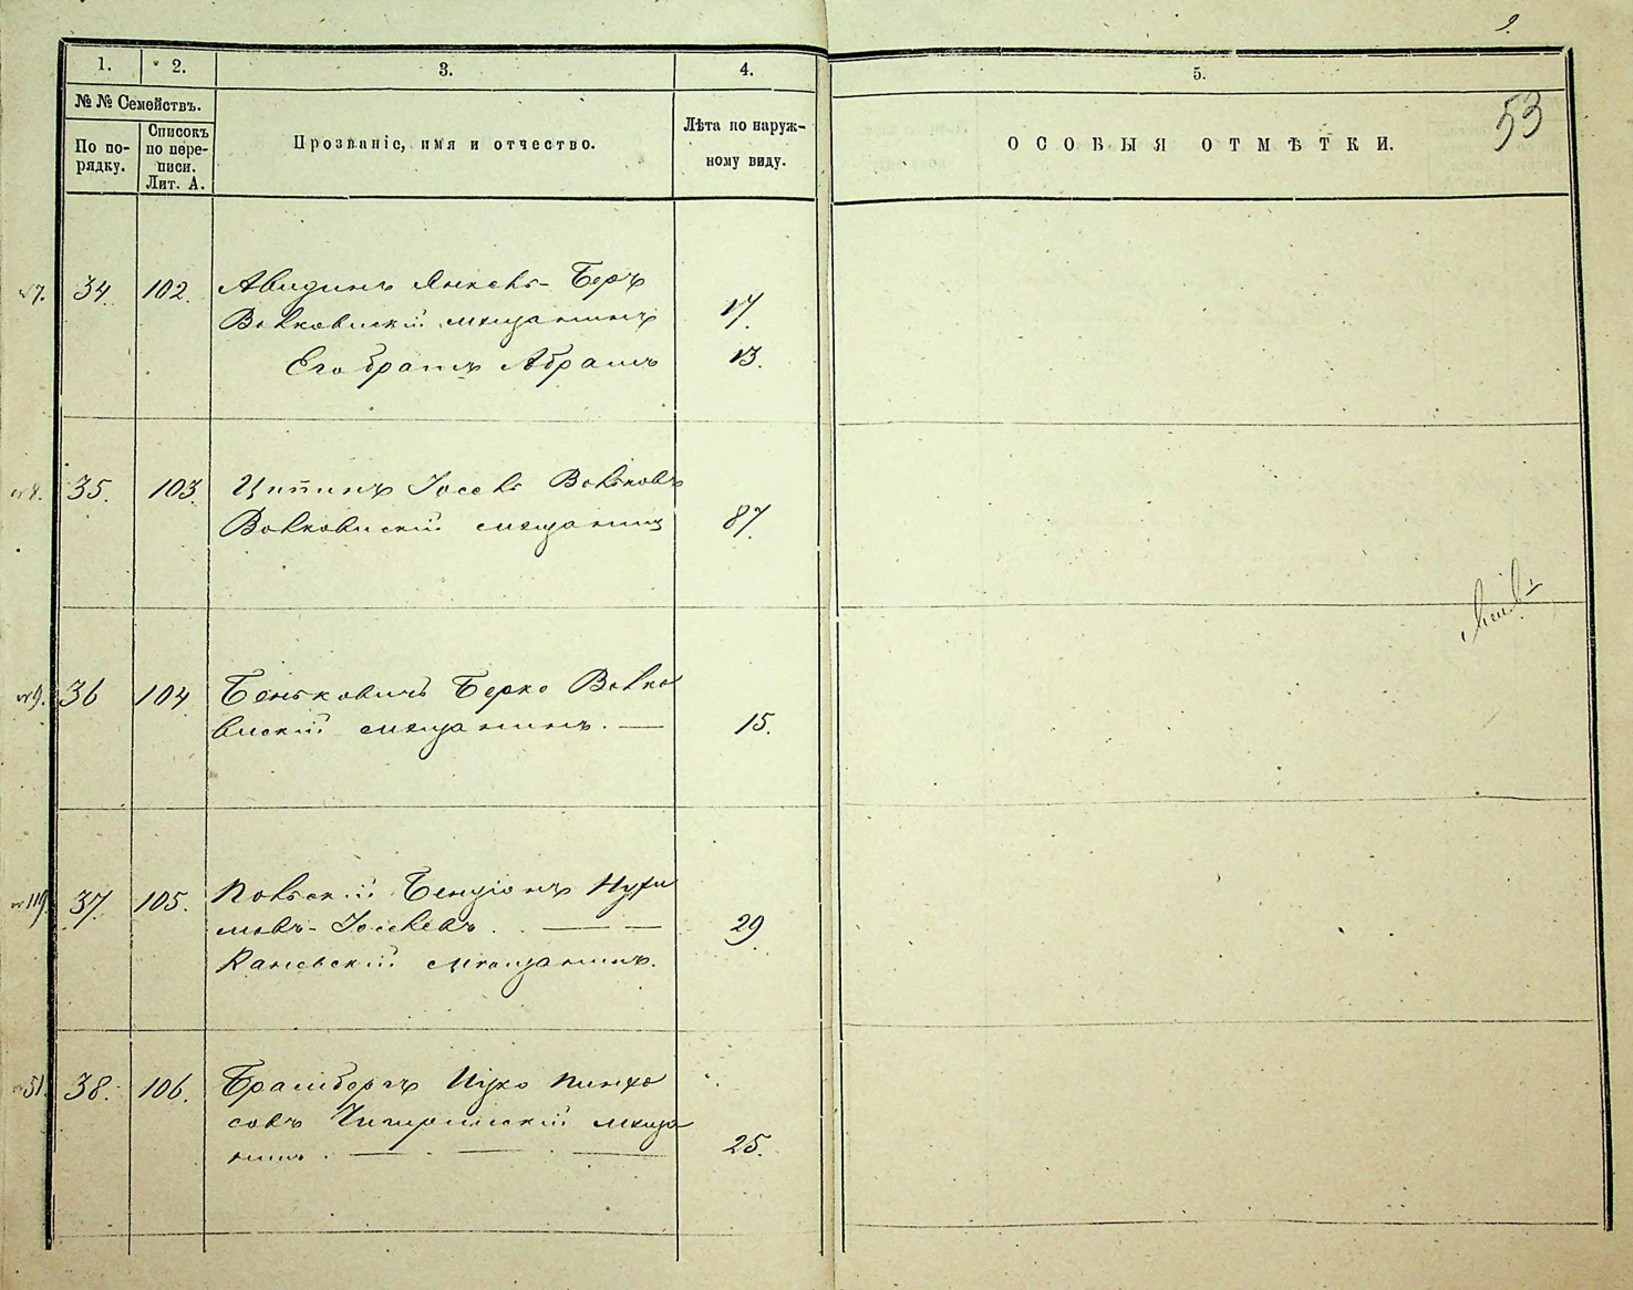 9.
53
1. 2. 3. 4. 5.
№ № Семействъ.
По по-
рядку.
Списокъ
по пере-
писи.
Лит. А.
Прозваніе, имя и отчество.
Лѣта по наруж-
ному виду.
ОСОБЫЯ ОТМѢТКИ.
7. 34. 102. Авидинъ Янкель-Беръ
Волковискій мещанинъ 17.
Его братъ Абрамъ 13.
8. 35. 103. Ципинъ Іосель Вольковъ
Волковискій мещанинъ 87.
9. 36 104 Беньковичъ Берко Волко
виский мещанинъ. — 15.
119 37. 105. Бенціонъ Нухи
мовъ-Іоселевъ. — — 29.
Каневскій мещанинъ.
51. 38. 106. Брамбергъ Ицко Пинхо
совъ Чигиринскій меща
нинъ. — . — . — 25.